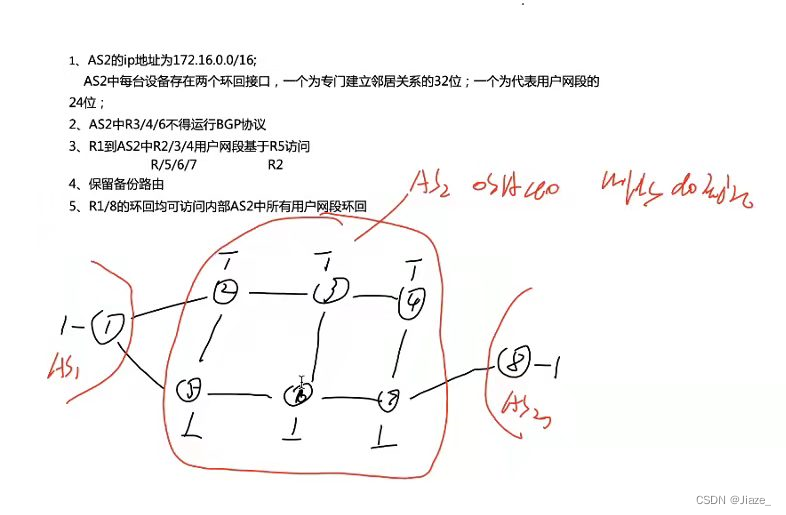 1、AS2的ip地址为172.16.0.0/16;
AS2中每台设备存在两个环回接口，一个为专门建立邻居关系的32位；一个为代表用户网段的
24位；
2、AS2中R3/4/6不得运行BGP协议
3、R1到AS2中R2/3/4用户网段基于R5访问
R/5/6/7 R2
4、保留备份路由
5、R1/8的环回均可访问内部AS2中所有用户网段环回
AS2 mpls domain
2 3 4
1
AS1
5 6 7
8
CSDN @Jiaze_